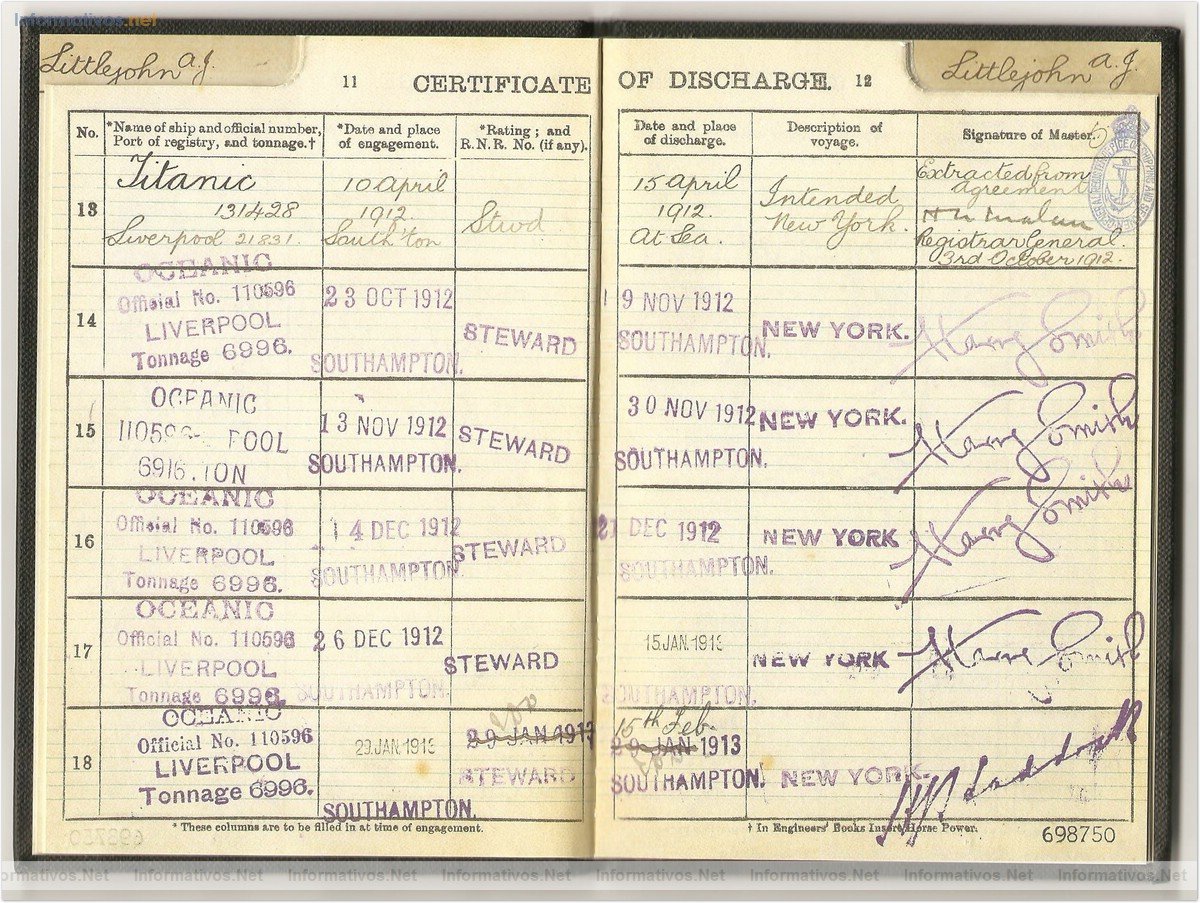 Informativos.net
Littlejohn A.J.
11 CERTIFICATE
No.
*Name of ship and official number,
Port of registry, and tonnage.†
*Date and place
of engagement.
*Rating; and
R.N.R. No. (if any).
13
Titanic
131428
Liverpool 21831.
10 April
1912.
South'ton
Stwd
14
OCEANIC
Official No. 110596
LIVERPOOL
Tonnage 6996.
23 OCT 1912
SOUTHAMPTON.
STEWARD
15
OCEANIC
POOL
13 NOV 1912
SOUTHAMPTON.
STEWARD
16
OCEANIC
Official No. 110596
LIVERPOOL
Tonnage 6996.
14 DEC 1912
SOUTHAMPTON.
STEWARD
17
OCEANIC
Official No. 110596
LIVERPOOL
Tonnage 6996.
26 DEC 1912
SOUTHAMPTON.
STEWARD
18
OCEANIC
Official No. 110596
LIVERPOOL
Tonnage 6996.
29.JAN.1913
SOUTHAMPTON.
29 JAN 1913
STEWARD
* These columns are to be filled in at time of engagement.
698750
Littlejohn A.J.
OF DISCHARGE. 12
Date and place
of discharge.
Description of
voyage.
Signature of Master.
15 April
1912.
At Sea.
Intended
New York.
Extracted from
agreement
Registrar General.
3rd October 1912.
9 NOV 1912
SOUTHAMPTON.
NEW YORK.
Harry Smith
30 NOV 1912
SOUTHAMPTON.
NEW YORK.
Harry Smith
DEC 1912
SOUTHAMPTON.
NEW YORK
Harry Smith
15.JAN.1913
SOUTHAMPTON.
NEW YORK
Harry Smith
15th Feb.
29 JAN 1913
SOUTHAMPTON.
NEW YORK.
† In Engineers' Books Insert Horse Power.
698750
Informativos.Net Informativos.Net Informativos.Net Informativos.Net Informativos.Net Informativos.Net Informativos.Net Informativos.Net